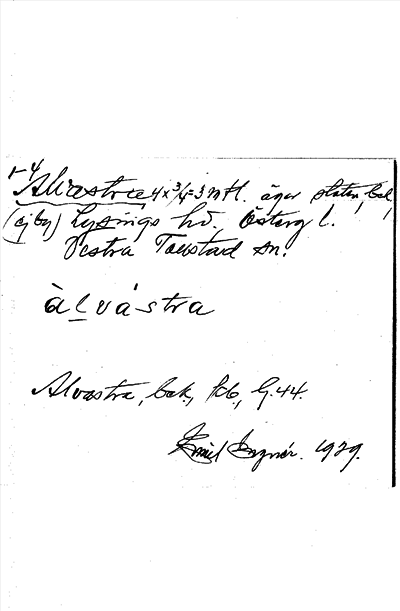 1-4
Alvastra 4 x 3/4 = 3 mtl. äger staten, bal,
(ej by) Lysings hd. Österg l.
Vestra Tollstad sn.
àlvástra
Alvastra, bok, kb, G. 44.
Emil 1929.